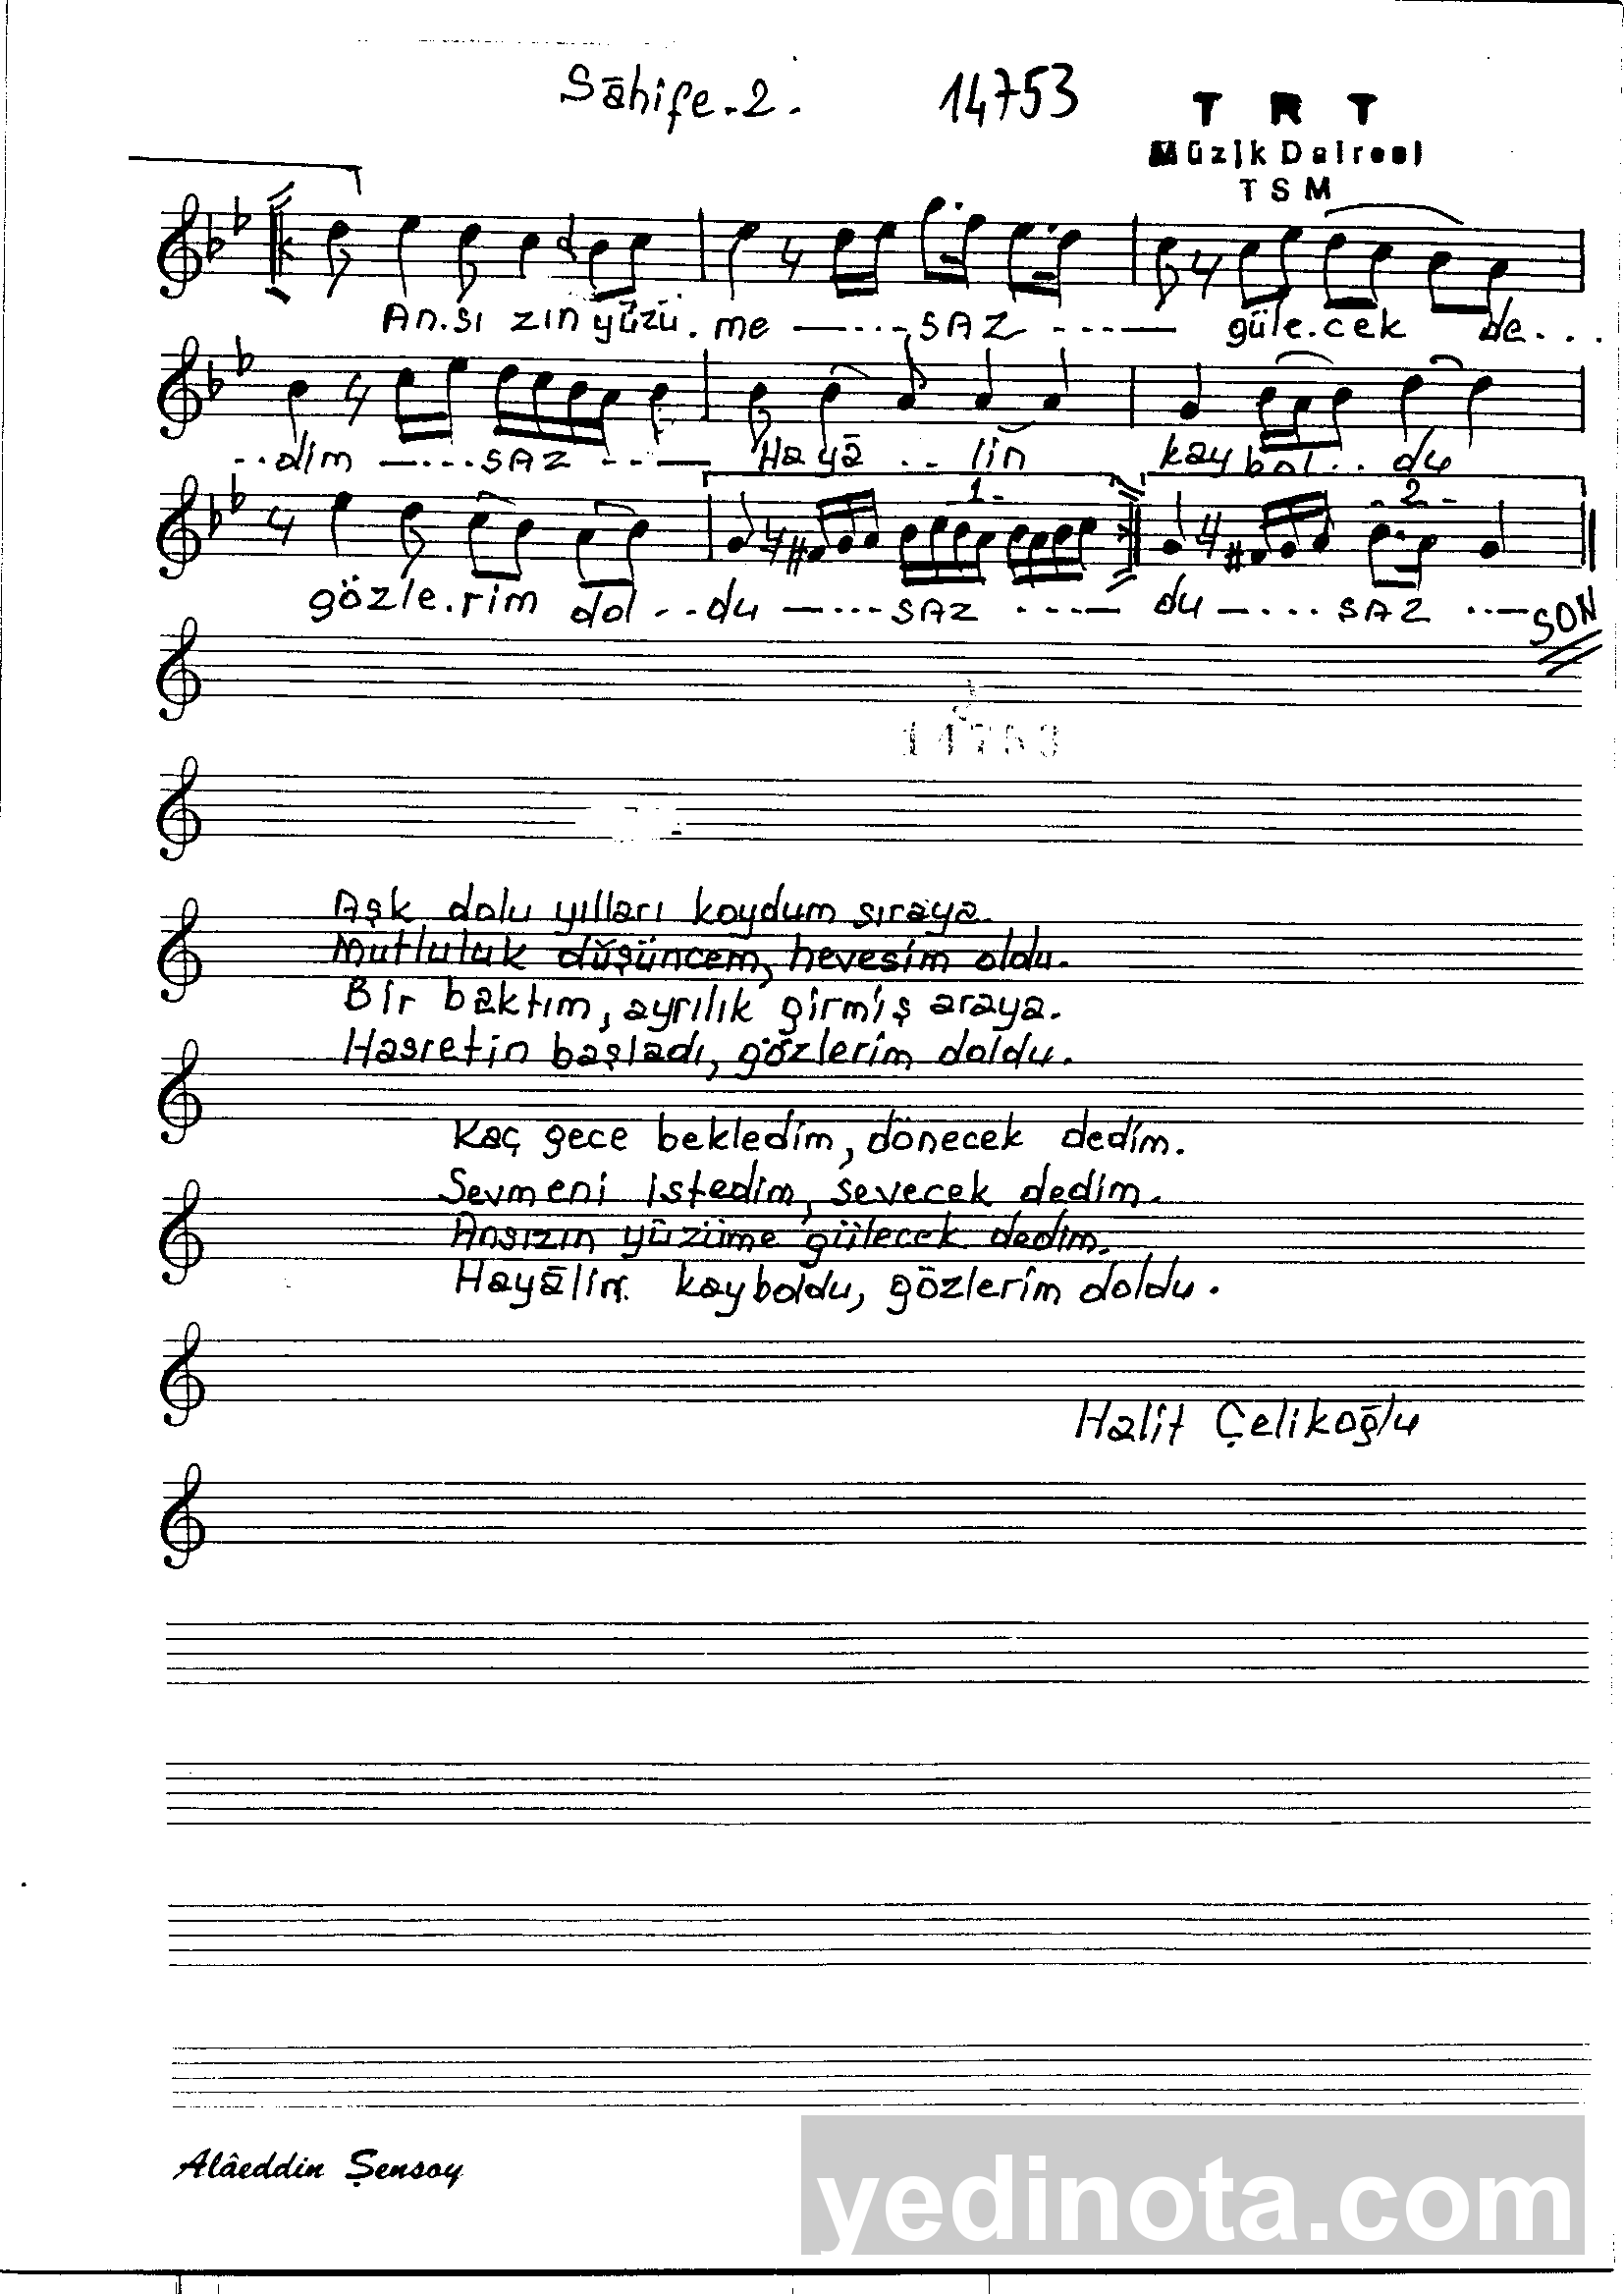 Sāhife-2. 14753 TRT
Müzik Dairesi
TSM
An.sı zın yüzü.me -----SAZ----- güle.cek de...
..dim -----SAZ----- Hayā..lin kaybol..du
-1- -2-
gözle.rim dol--du -----SAZ----- du -----SAZ-----
SON
14753
Aşk dolu yılları koydum sıraya.
Mutluluk düşüncem, hevesim oldu.
Bir baktım, ayrılık girmiş araya.
Hasretin başladı, gözlerim doldu.
Kaç gece bekledim, dönecek dedim.
Sevmeni istedim, sevecek dedim.
Ansızın yüzüme gülecek dedim.
Hayālin kayboldu, gözlerim doldu.
Halit Çelikoğlu
Alâeddin Şensoy
yedinota.com